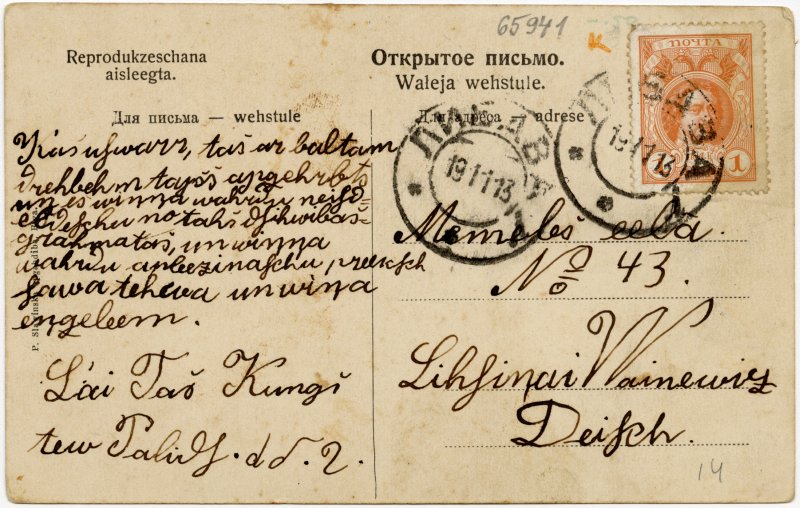 65941
Reprodukzeschana
aisleegta.
Открытое письмо.
Waleja wehstule.
ПОЧТА
1 1
Для письма — wehstule
Для адреса — adrese
ЛИБАВА
19 11 13
ЛИБАВА
19 11 13
Kas uswarr, tas ar baltam
drehbehm tapss apgehrbts
un es wiņņa wahrdu neisd-
sedeschu no tahs dsihwibas-
grahmatas, un wiņņa
wahrdu apleezinaschu, preeksch
sawa tehwa un wiņa
engeleem.
Lai Tas Kungs
tew Palids. d. d. 2.
Memeles eela.
No 43.
Lihsinai Wainewiz
Deisch.
P. Slesinsk
14